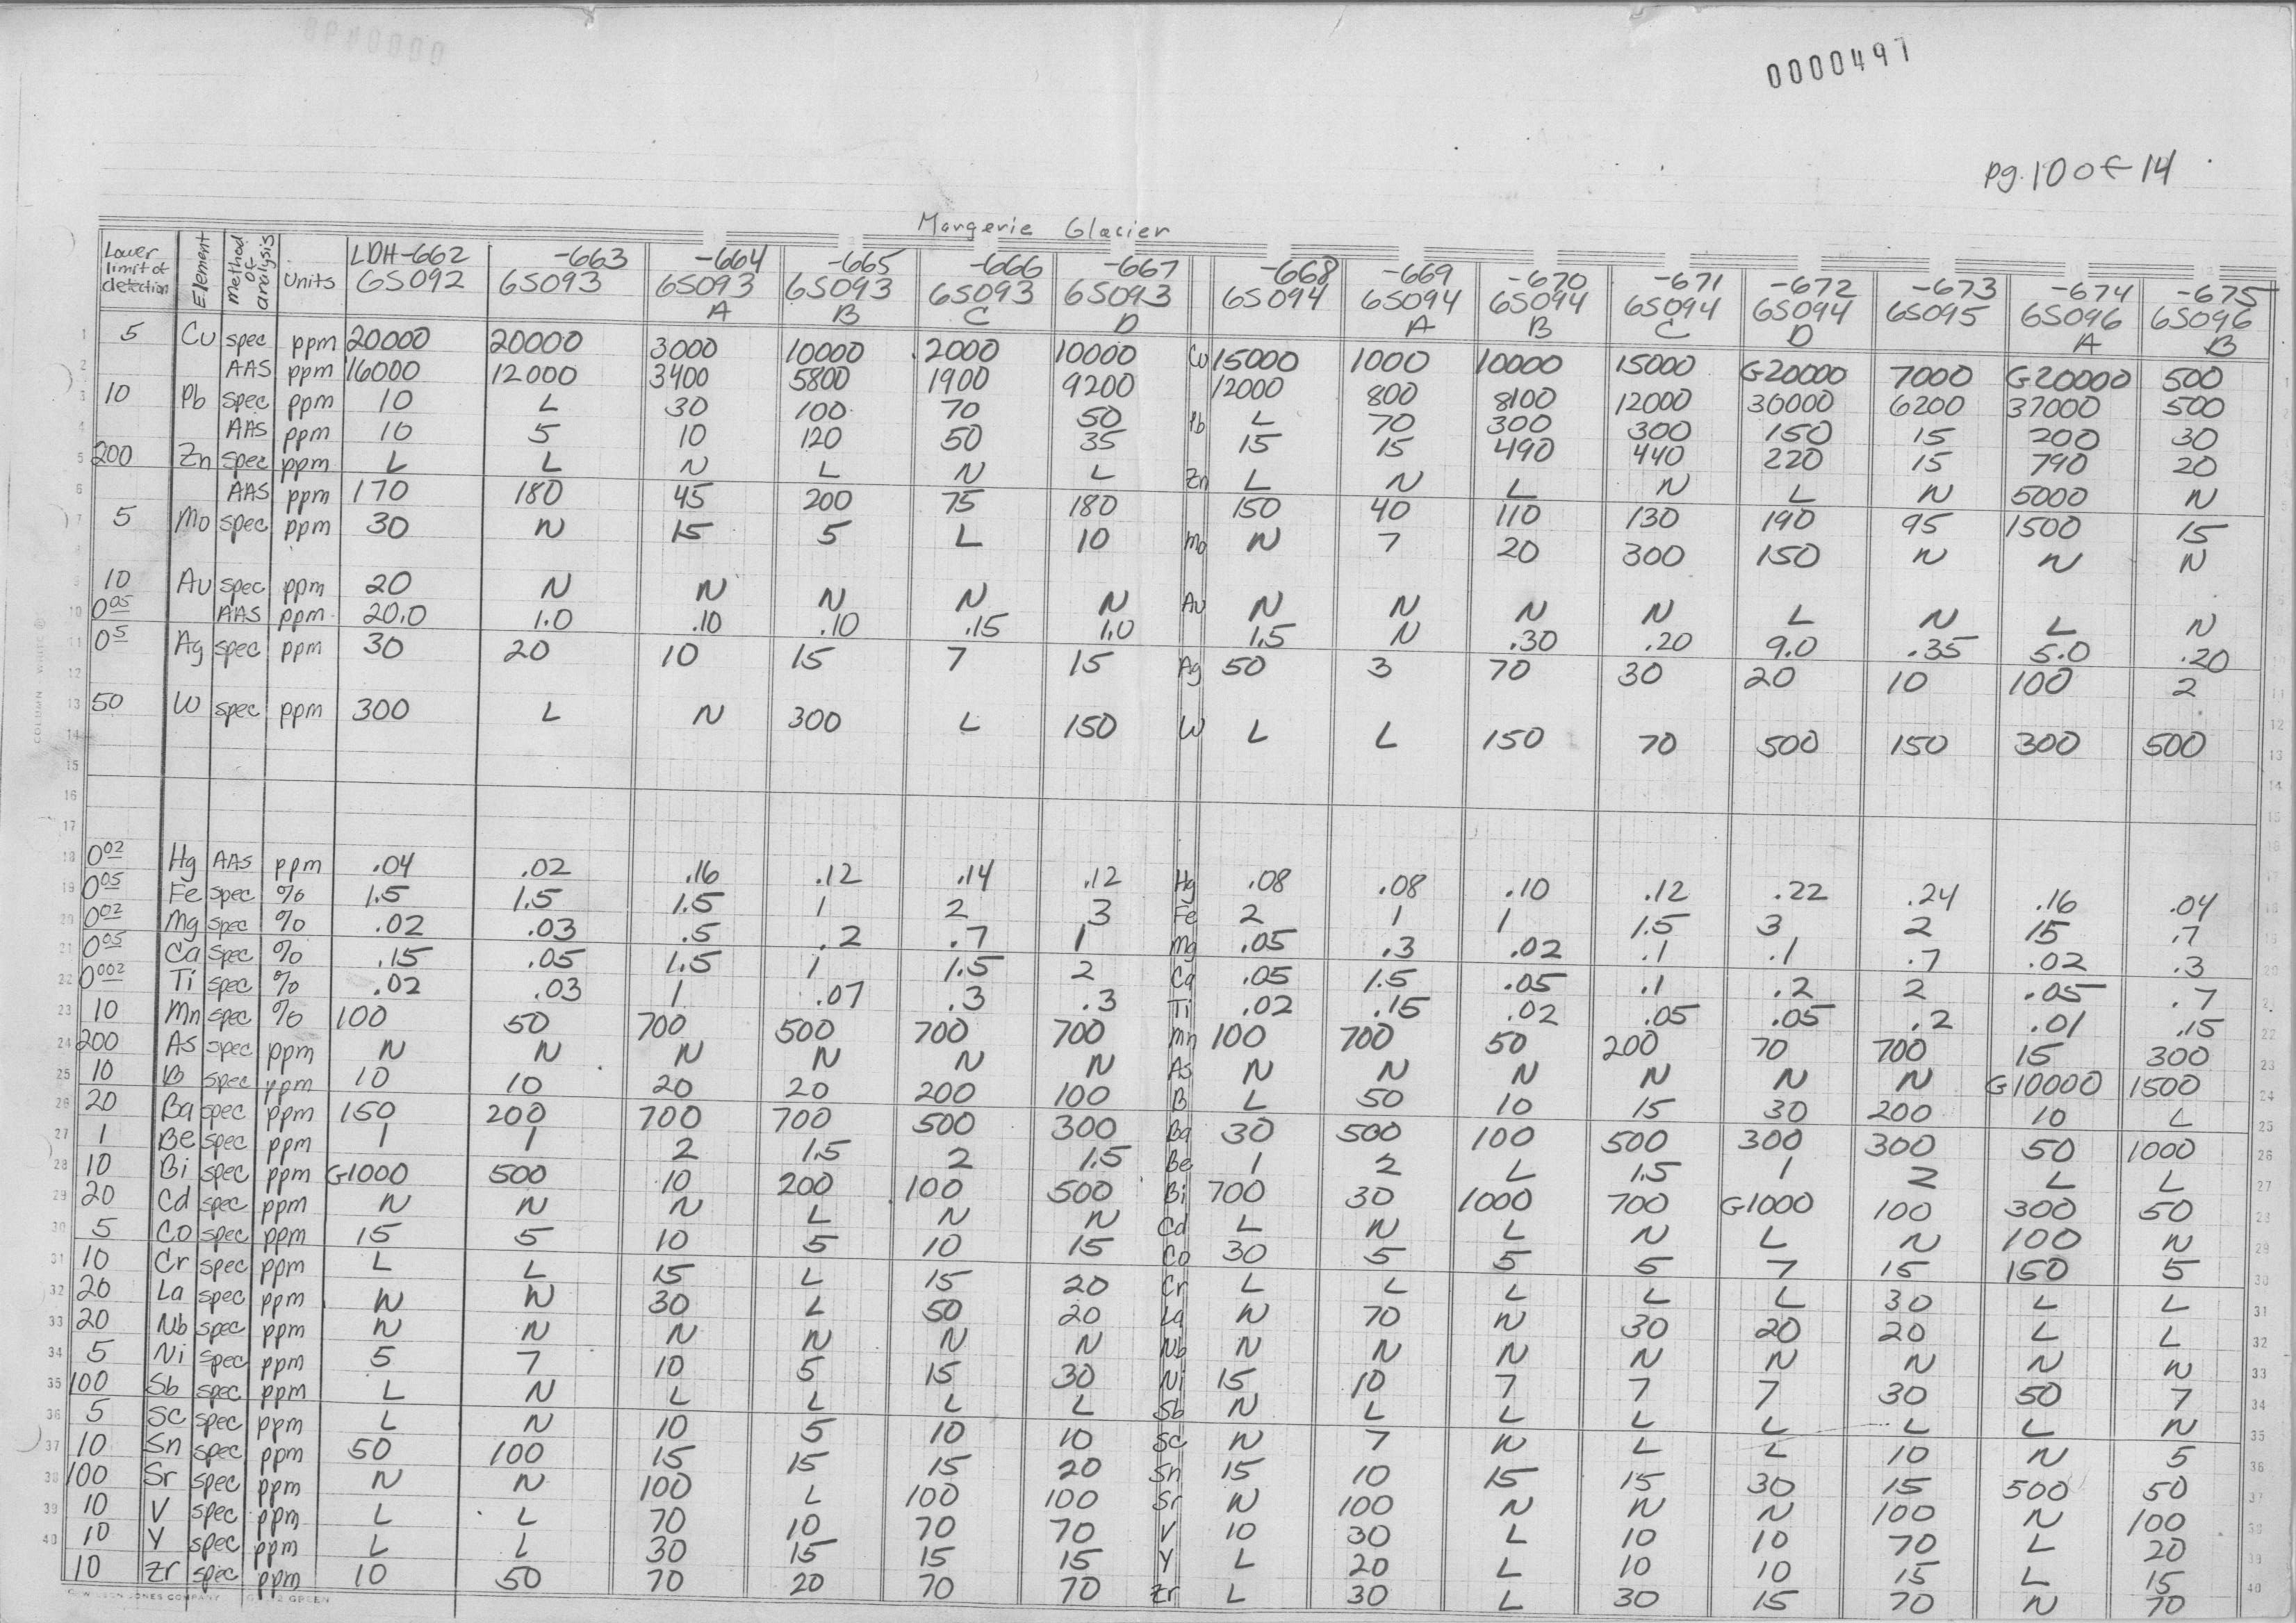 0000498
0000497
pg. 10 of 14
Margerie Glacier
Lower limit of detection Element Method of analysis Units LDH-662 6S092 -663 6S093 -664 6S093 A -665 6S093 B -666 6S093 C -667 6S093 D -668 6S094 -669 6S094 A -670 6S094 B -671 6S094 C -672 6S094 D -673 6S095 -674 6S096 A -675 6S096 B
1 5 Cu spec ppm 20000 20000 3000 10000 2000 10000 Cu 15000 1000 10000 15000 G20000 7000 G20000 500
2 AAS ppm 16000 12000 3400 5800 1900 9200 12000 800 8100 12000 36000 6200 37000 500
3 10 Pb spec ppm 10 L 30 100 70 50 Pb L 70 300 300 150 15 200 30
4 AAS ppm 10 5 10 120 50 35 15 15 490 440 220 15 790 20
5 200 Zn spec ppm L L N L N L Zn L N L N L N 5000 N
6 AAS ppm 170 180 45 200 75 180 150 40 110 130 190 95 1500 15
7 5 Mo spec ppm 30 N 15 5 L 10 Mo N 7 20 300 150 N N N
9 10 Au spec ppm 20 N N N N N Au N N N N L N L N
10 0.05 AAS ppm 20.0 1.0 .10 .10 .15 1.0 1.5 N .30 .20 9.0 .35 5.0 .20
11 0.5 Ag spec ppm 30 20 10 15 7 15 Ag 50 3 70 30 20 10 100 2
12
13 50 W spec ppm 300 L N 300 L 150 W L L 150 70 500 150 300 500
14
15
16
17
18 0.02 Hg AAS ppm .04 .02 .16 .12 .14 .12 Hg .08 .08 .10 .12 .22 .24 .16 .04
19 0.05 Fe spec % 1.5 1.5 1.5 1 2 3 Fe 2 1 1 1.5 3 2 15 .7
20 0.02 Mg spec % .02 .03 .5 .2 .7 1 Mg .05 .3 .02 .1 .1 .7 .02 .3
21 0.05 Ca spec % .15 .05 1.5 1 1.5 2 Ca .05 1.5 .05 .1 .2 2 .05 .7
22 0.002 Ti spec % .02 .03 1 .07 .3 .3 Ti .02 .15 .02 .05 .05 .2 .01 .15
23 10 Mn spec % 100 50 700 500 700 700 Mn 100 700 50 200 70 700 15 300
24 200 As spec ppm N N N N N N As N N N N N N G10000 1500
25 10 B spec ppm 10 10 20 20 200 100 B L 50 10 15 30 200 10 L
26 20 Ba spec ppm 150 200 700 700 500 300 Ba 30 500 100 500 300 300 50 1000
27 1 Be spec ppm 1 1 2 1.5 2 1.5 Be 1 2 L 1.5 1 2 L L
28 10 Bi spec ppm G1000 500 10 200 100 500 Bi 700 30 1000 700 G1000 100 300 50
29 20 Cd spec ppm N N N L N N Cd L N L N L N 100 N
30 5 Co spec ppm 15 5 10 5 10 15 Co 30 5 5 5 7 15 150 5
31 10 Cr spec ppm L L 15 L 15 20 Cr L L L L L 30 L L
32 20 La spec ppm N N 30 L 50 20 La N 70 N 30 20 20 L L
33 20 Nb spec ppm N N N N N N Nb N N N N N N N N
34 5 Ni spec ppm 5 7 10 5 15 30 Ni 15 10 7 7 7 30 50 7
35 100 Sb spec ppm L N L L L L Sb N L L L L L L N
36 5 Sc spec ppm L N 10 5 10 10 Sc N 7 N L L 10 N 5
37 10 Sn spec ppm 50 100 15 15 15 20 Sn 15 10 15 15 30 15 500 50
38 100 Sr spec ppm N N 100 L 100 100 Sr N 100 N N N 100 N 100
39 10 V spec ppm L L 70 10 70 70 V 10 30 L 10 10 70 L 20
40 10 Y spec ppm L L 30 15 15 15 Y L 20 L 10 10 15 L 15
10 Zr spec ppm 10 50 70 20 70 70 Zr L 30 L 30 15 70 N 70